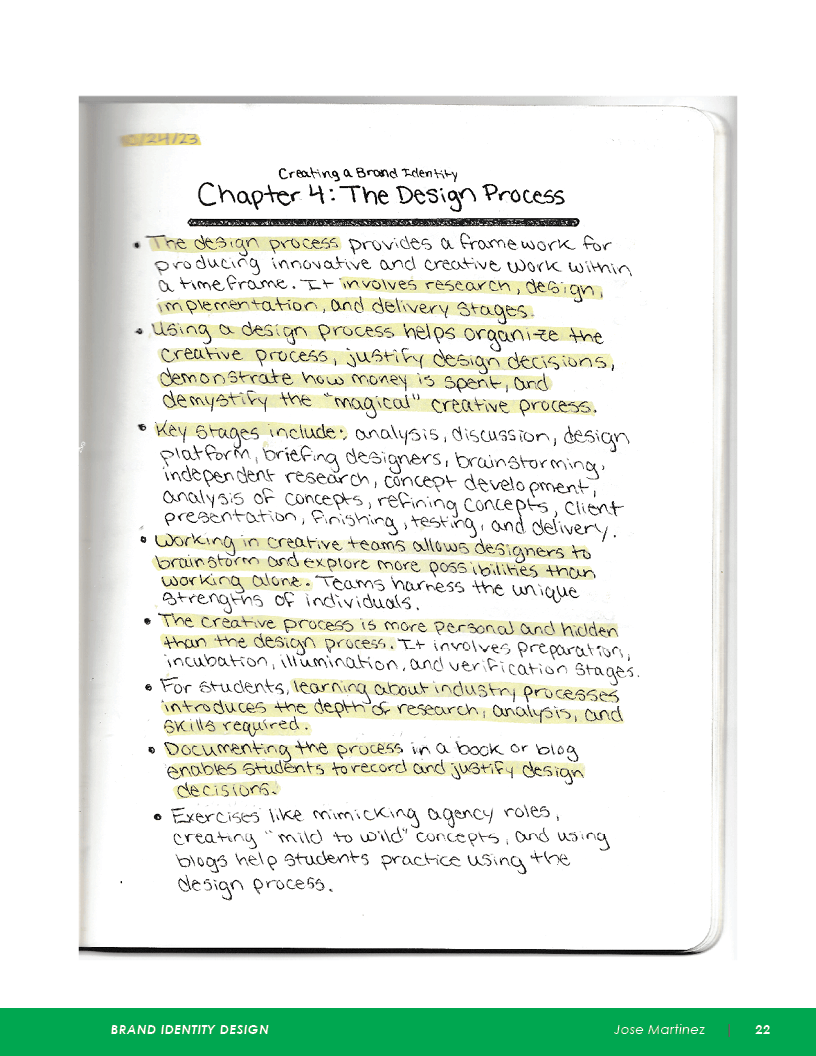 10/24/23
Creating a Brand Identity
Chapter 4: The Design Process
• The design process provides a framework for
producing innovative and creative work within
a timeframe. It involves research, design,
implementation, and delivery stages.
• Using a design process helps organize the
creative process, justify design decisions,
demonstrate how money is spent, and
demystify the "magical" creative process.
• Key stages include: analysis, discussion, design
platform, briefing designers, brainstorming,
independent research, concept development,
analysis of concepts, refining concepts, client
presentation, finishing, testing, and delivery.
• Working in creative teams allows designers to
brainstorm and explore more possibilities than
working alone. Teams harness the unique
strengths of individuals.
• The creative process is more personal and hidden
than the design process. It involves preparation,
incubation, illumination, and verification stages.
• For students, learning about industry processes
introduces the depth of research, analysis, and
skills required.
• Documenting the process in a book or blog
enables students to record and justify design
decisions.
• Exercises like mimicking agency roles,
creating "mild to wild" concepts, and using
blogs help students practice using the
design process.
BRAND IDENTITY DESIGN
Jose Martinez | 22